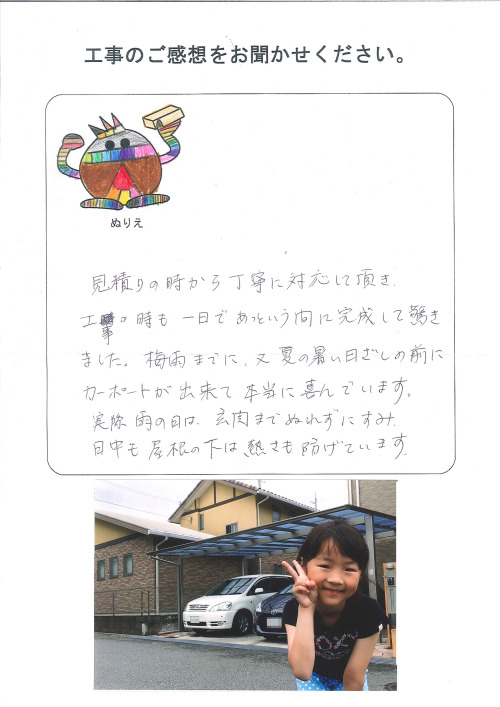 工事のご感想をお聞かせください。
ぬりえ
見積りの時から丁寧に対応して頂き
工事の時も一日であっという間に完成して驚き
ました。梅雨までに、又夏の暑い日ざしの前に
カーポートが出来て本当に喜んでいます。
実際雨の日は、玄関までぬれずにすみ
日中も屋根の下は熱さも防げています。